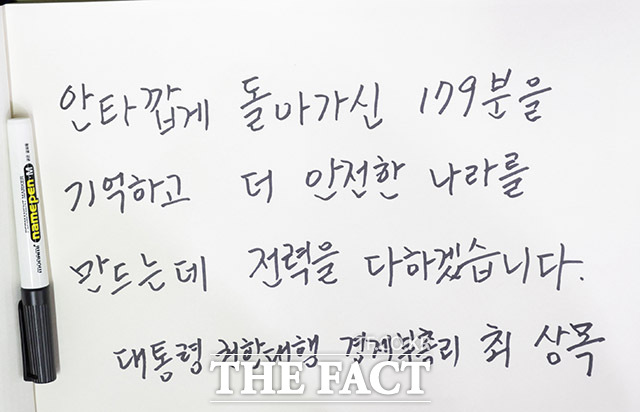 안타깝게 돌아가신 179분을
기억하고 더 안전한 나라를
만드는데 전력을 다하겠습니다.
대통령 권한대행 경제부총리 최 상목
THE FACT
namepen